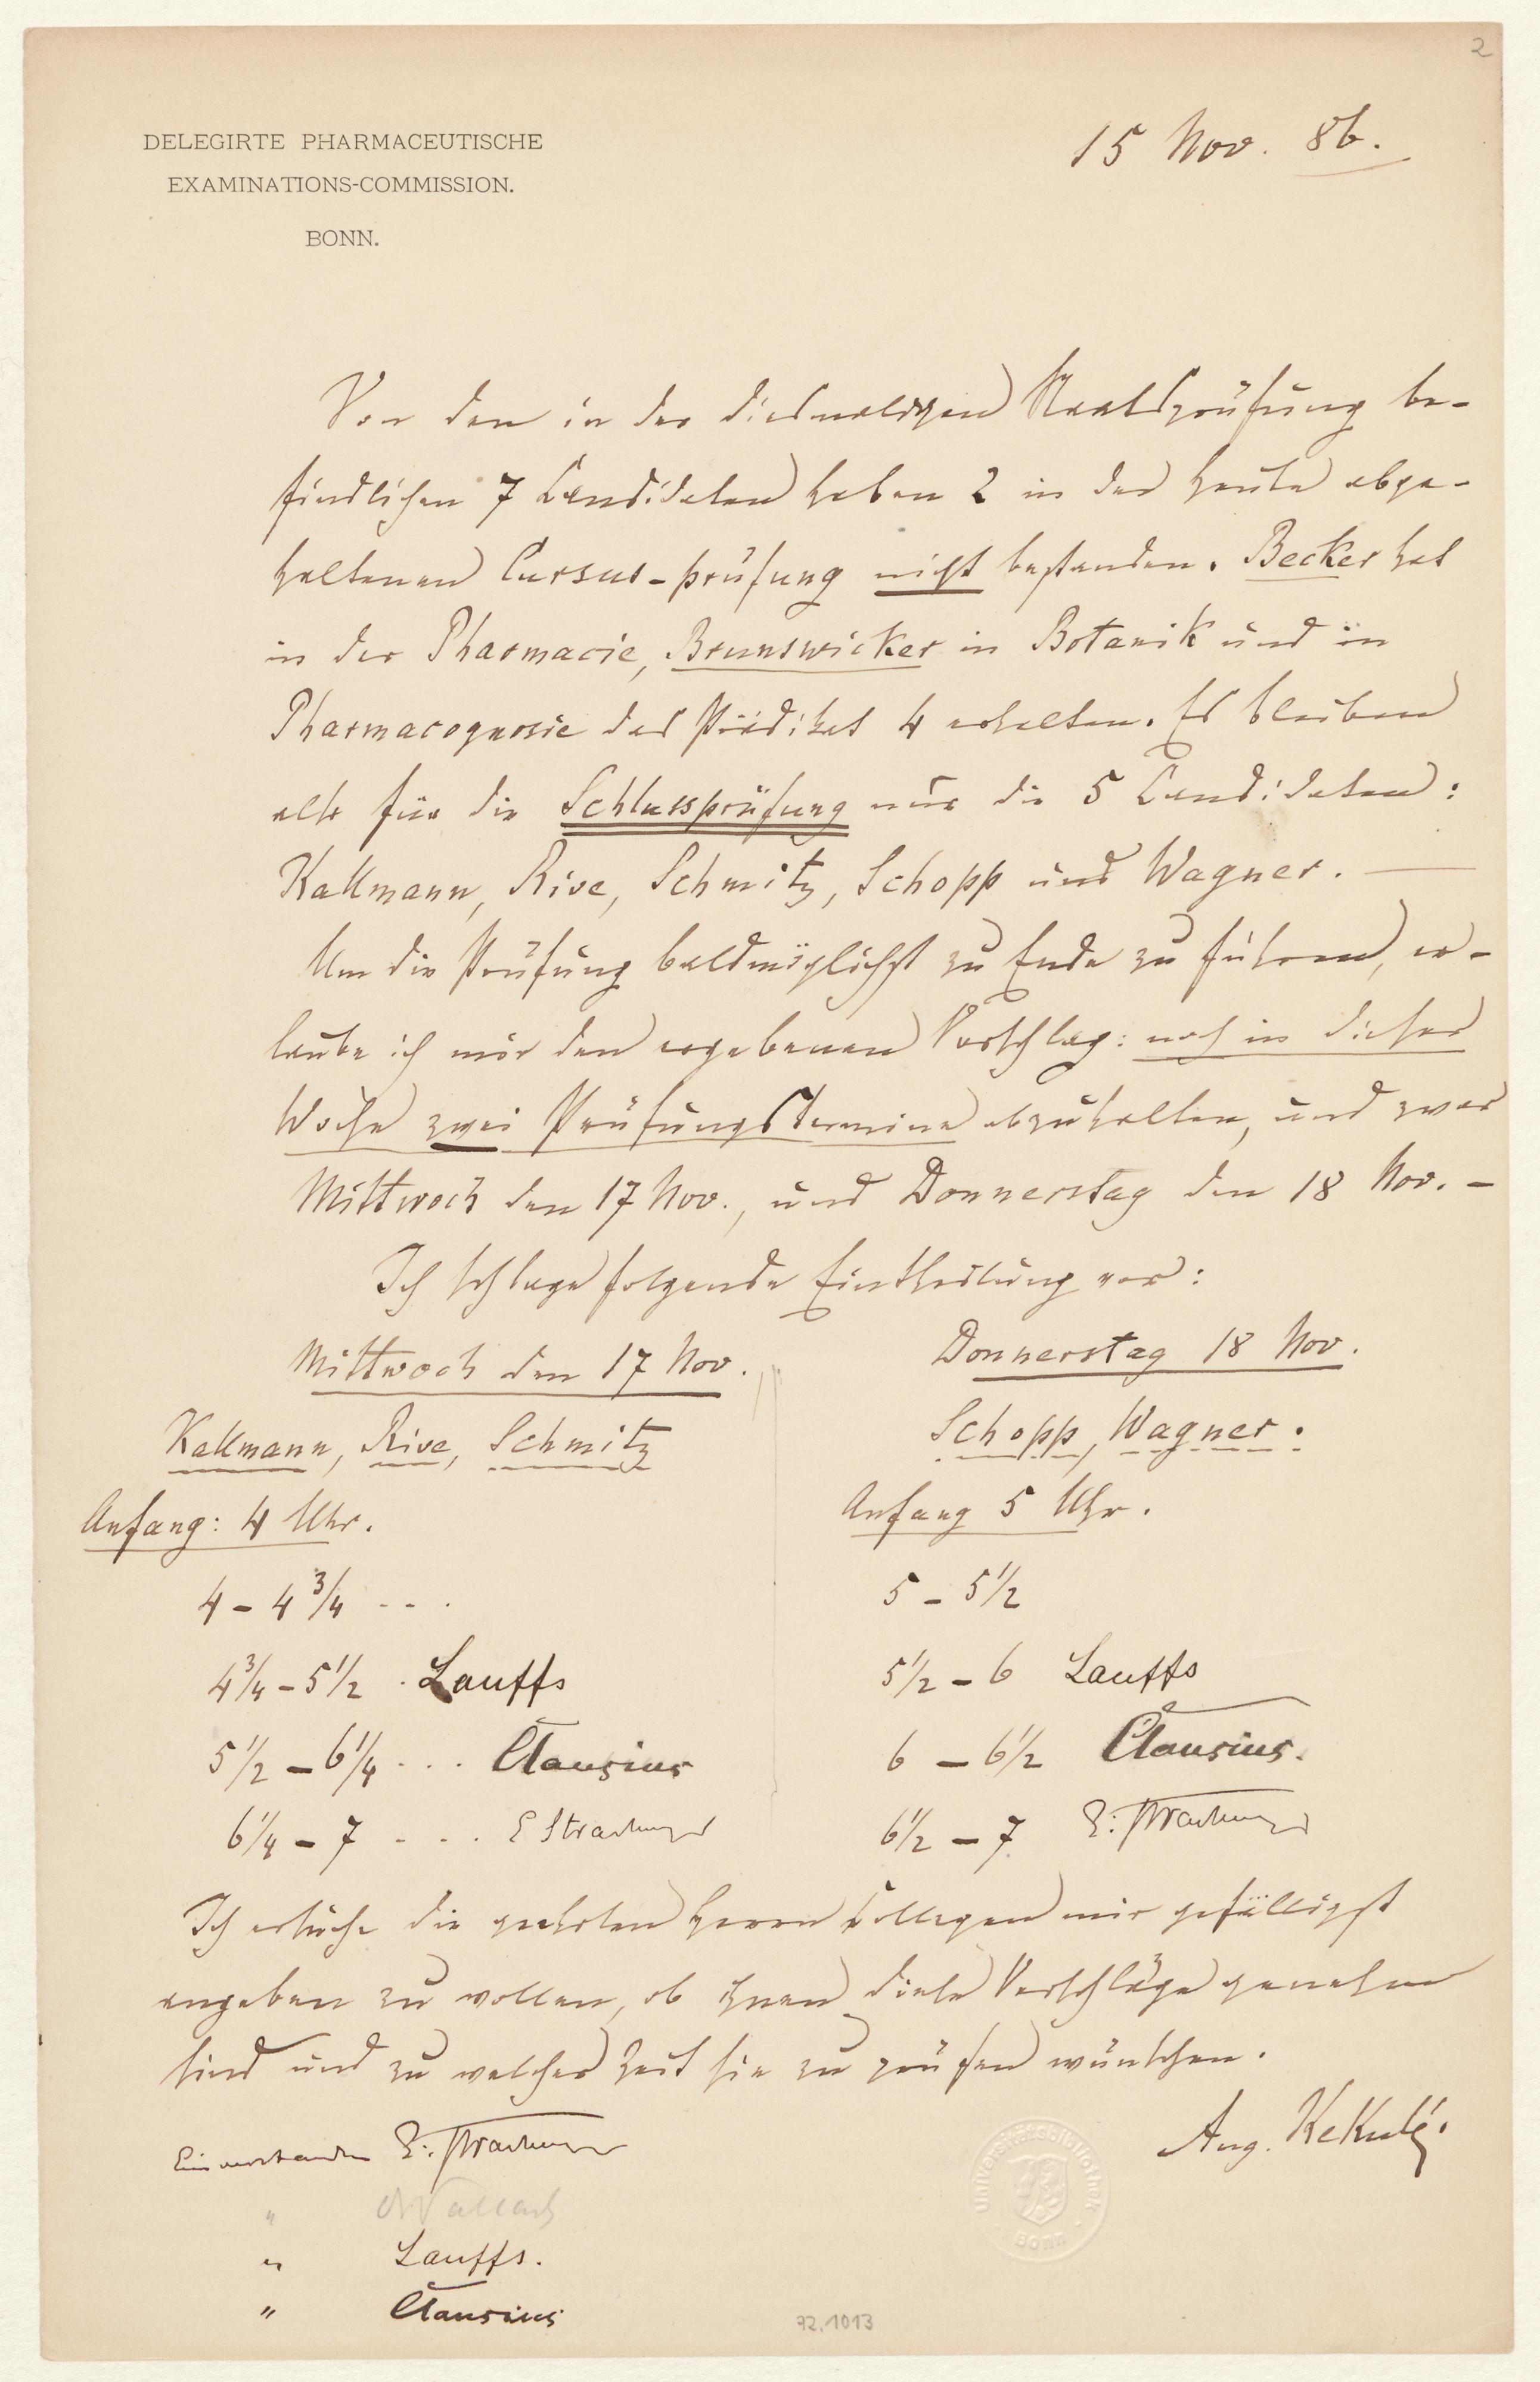 2
DELEGIRTE PHARMACEUTISCHE
EXAMINATIONS-COMMISSION.
BONN.
15 Nov. 86.
Von den in der diesmaligen Staatsprüfung be-
findlichen 7 Candidaten haben 2 in der heute abge-
haltenen Cursus-prüfung nicht bestanden. Becker hat
in der Pharmacie, Brunswicker in Botanik und in
Pharmacognosie das Prädikat 4 erhalten. Es bleiben
also für die Schlussprüfung nur die 5 Candidaten:
Kallmann, Rive, Schmitz, Schopp und Wagner. —
Um die Prüfung baldmöglichst zu Ende zu führen, er-
laube ich mir den ergebenen Vorschlag: noch in dieser
Woche zwei Prüfungstermine abzuhalten, und zwar
Mittwoch den 17 Nov., und Donnerstag den 18 Nov. –
Ich schlage folgende Eintheilung vor:
Mittwoch den 17 Nov.
Kallmann, Rive, Schmitz
Anfang: 4 Uhr.
4 – 4 3/4 - - .
4 3/4 – 5 1/2 . Lauffs
5 1/2 – 6 1/4 . . . Clausius
6 1/4 – 7 - - . . E Strasburger
Donnerstag 18 Nov.
Schopp, Wagner.
Anfang 5 Uhr.
5 – 5 1/2
5 1/2 – 6 Lauffs
6 – 6 1/2 Clausius.
6 1/2 – 7. E. Strasburger
Ich ersuche die geehrten Herren Collegen mir gefälligst
angeben zu wollen, ob ihnen diese Vorschläge genehm
sind und zu welcher Zeit sie zu prüfen wünschen.
Aug. Kekulé.
Einverstanden E. Strasburger
" O Wallach
" Lauffs.
" Clausius
Universitätsbibliothek
Bonn
72.1013